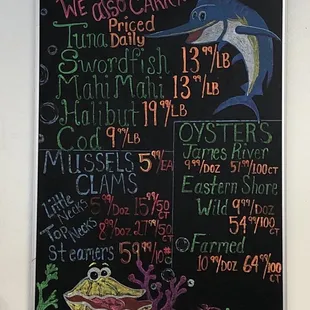 We also Carry
Tuna Priced Daily
Swordfish 13.99/LB
Mahi Mahi 13.99/LB
Halibut 19.99/LB
Cod 9.99/LB
MUSSELS 5.99/EA
CLAMS
Little Necks 5.99/DOZ 15.99/50 CT
Top Necks 8.99/DOZ 27.99/50 CT
Steamers 59.99/10#
OYSTERS
James River
9.99/DOZ 57.99/100 CT
Eastern Shore
Wild 9.99/DOZ
54.99/100 CT
Farmed
10.99/DOZ 64.99/100 CT